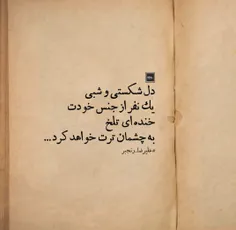 دل شکستی و شبی
یك نفر از جنس خودت
خنده ای تلخ
به چشمان ترت خواهد کرد...
#علیرضا_رنجبر